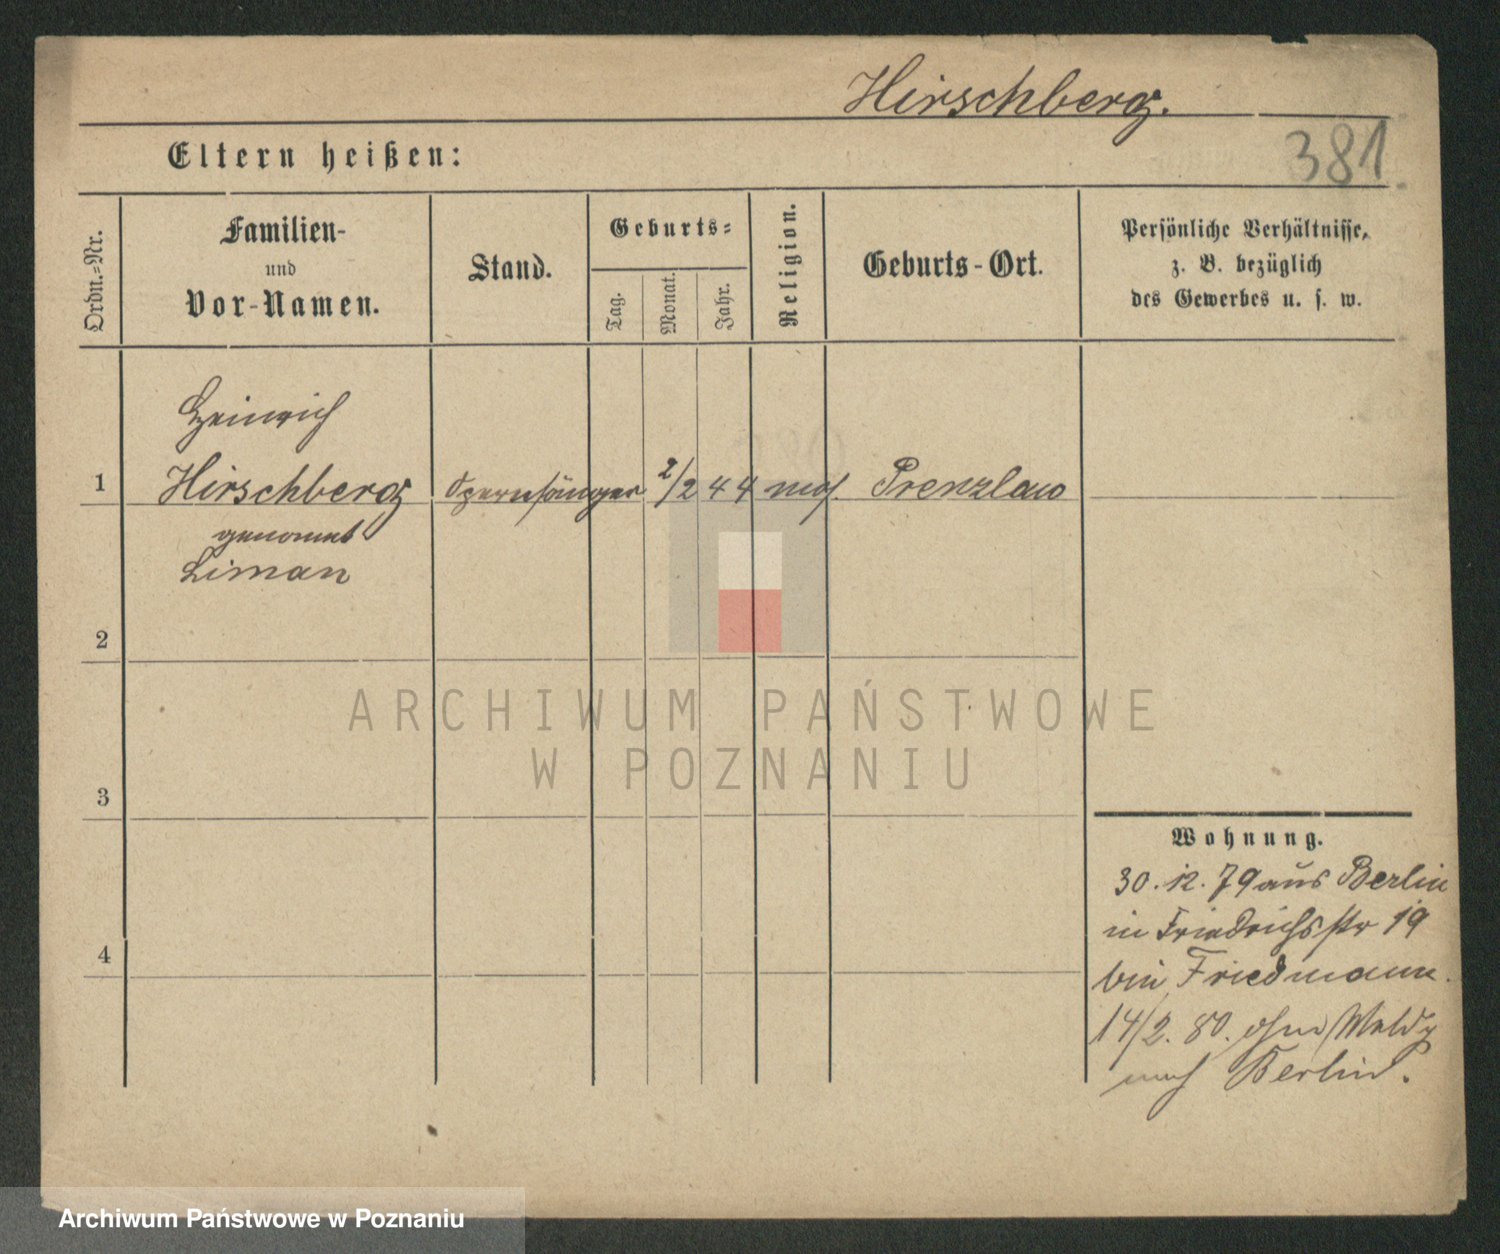 Hirschberg.
381
Eltern heißen:
Ordn.-Nr.
Familien-
und
Vor-Namen.
Stand.
Geburts-
Tag.
Monat.
Jahr.
Religion.
Geburts-Ort.
Persönliche Verhältnisse,
z. B. bezüglich
des Gewerbes u. s. w.
Heinrich
1 Hirschberg Opernsänger 2/2 44 mos Prenzlau
genannt
Liman
2
3
4
ARCHIWUM PAŃSTWOWE
W POZNANIU
Wohnung.
30. 12. 79 aus Berlin
in Friedrichsstr 19
bei Friedmann.
14/2. 80. ohne Meldg
nach Berlin.
Archiwum Państwowe w Poznaniu